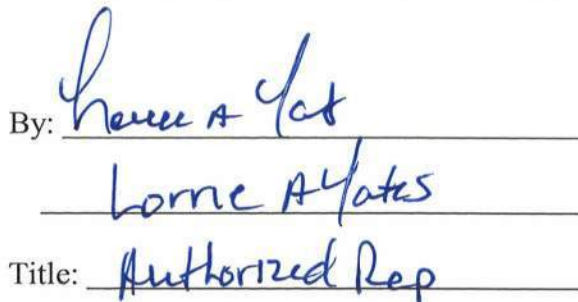 By: Lorrie A Yates
Lorrie A Yates
Title: Authorized Rep